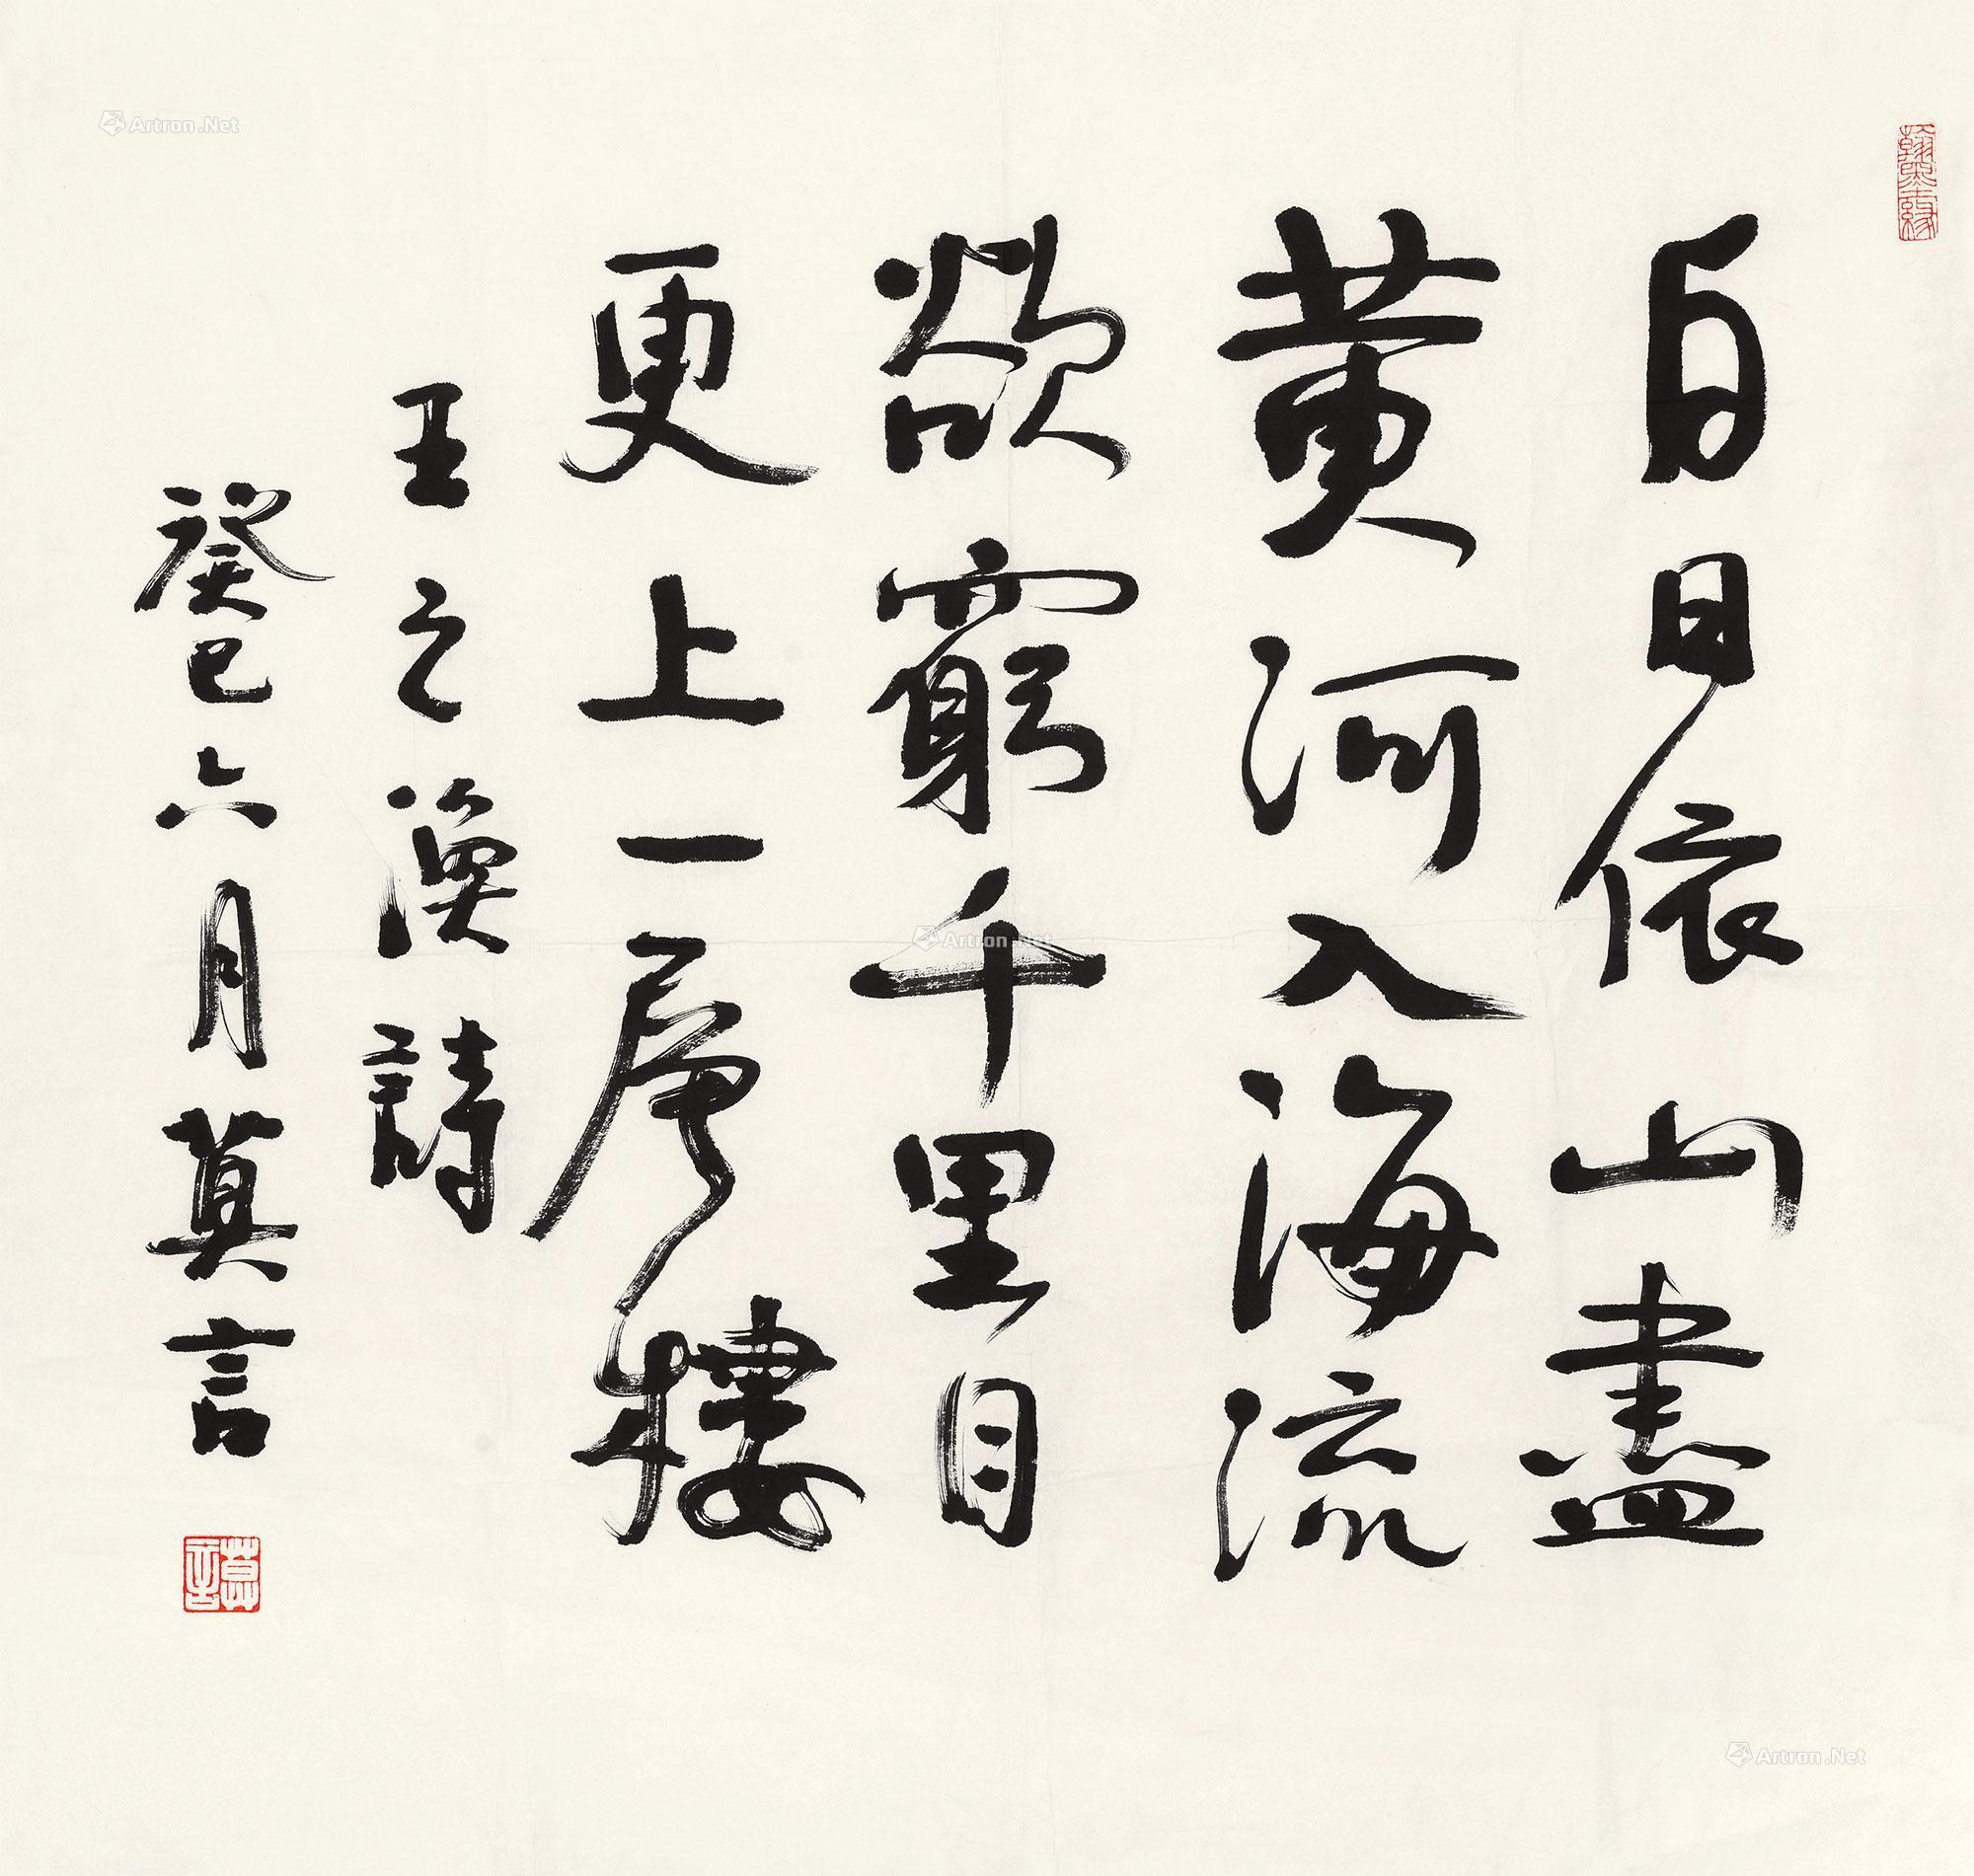 翰墨緣
白日依山盡
黄河入海流
欲窮千里目
更上一層樓
王之渙詩
癸巳六月莫言
莫言
Artron.Net
Artron.Net
Artron.Net